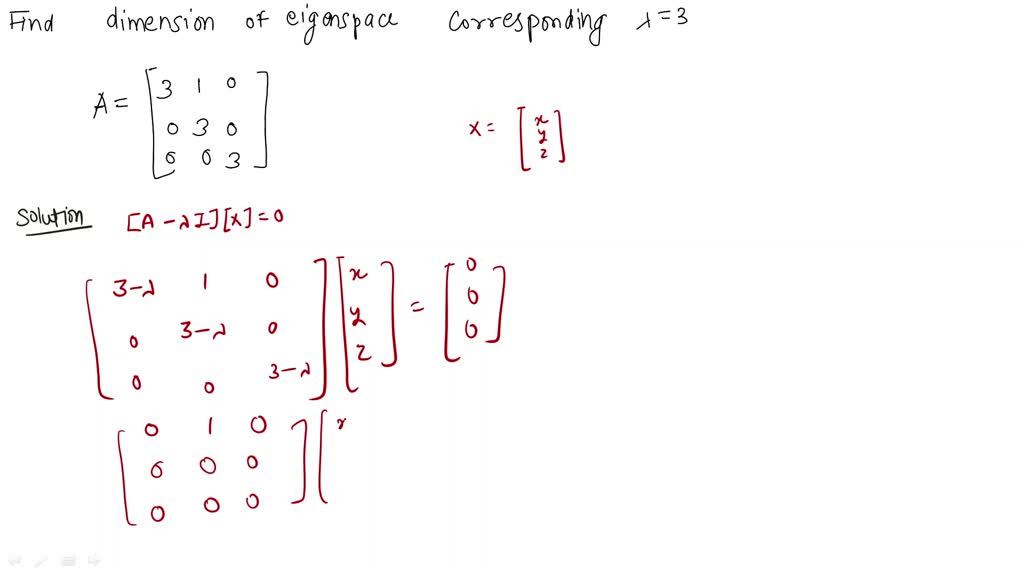 Find dimension of eigenspace corresponding λ=3
A = [3 1 0
0 3 0
0 0 3]
X = [x
y
z]
Solution [A - λI][X] = 0
[3-λ 1 0
0 3-λ 0
0 0 3-λ] [x
y
z] = [0
0
0]
[0 1 0
0 0 0
0 0 0] [x